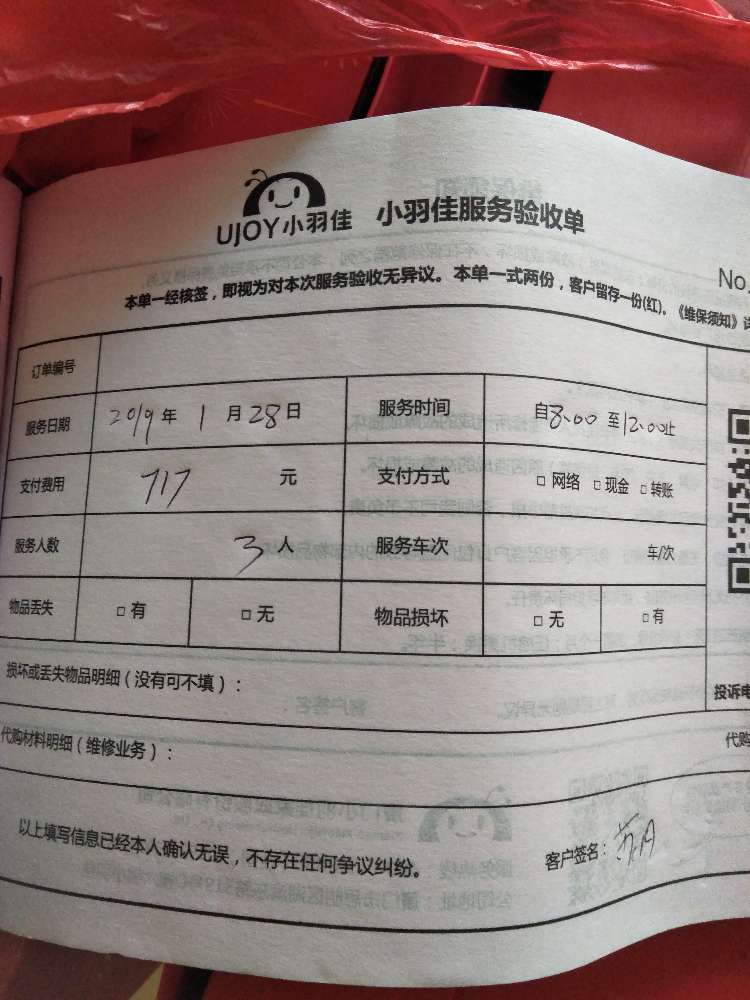 UJOY小羽佳 小羽佳服务验收单
No.
本单一经核签，即视为对本次服务验收无异议。本单一式两份，客户留存一份(红)。《维保须知》
订单编号
服务日期 2019年 1月28日 服务时间 自8:00至12:00止
支付费用 717 元 支付方式 □网络 □现金 □转账
服务人数 3人 服务车次 车/次
物品丢失 □有 □无 物品损坏 □无 □有
损坏或丢失物品明细（没有可不填）：
投诉电
代购材料明细（维修业务）：
代购
以上填写信息已经本人确认无误，不存在任何争议纠纷。
客户签名：